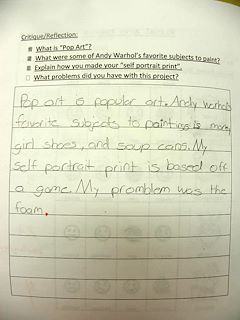 Critique/Reflection:
What is "Pop Art"?
What were some of Andy Warhol's favorite subjects to paint?
Explain how you made your "self portrait print".
What problems did you have with this project?
Pop art is popular art. Andy Warhols
favorite subjects to paintings is money
girl shoes, and soup cans. My
self portrait print is based off
a game. My promblem was the
foam.